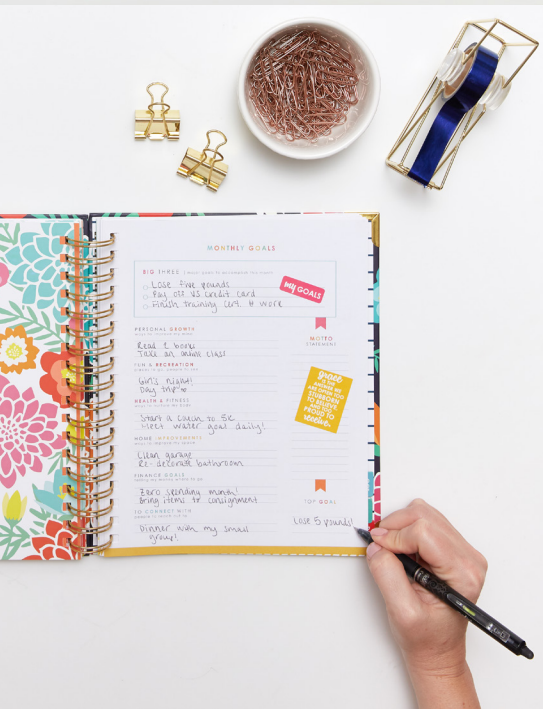 MONTHLY GOALS
BIG THREE
Lose five pounds
Pay off VS Credit card
Finish training cert. @ work
my GOALS
PERSONAL GROWTH
Read 2 books
Take an online class
MOTTO
STATEMENT
FUN & RECREATION
Girl's night!
Day trip
HEALTH & FITNESS
Start a Couch to 5K
Meet water goal daily!
grace
HOME IMPROVEMENTS
Clean garage
Re-decorate bathroom
FINANCE GOALS
Zero spending month!
Bring items to consignment
TOP GOAL
Lose 5 pounds!
TO CONNECT WITH
Dinner with my small
group!